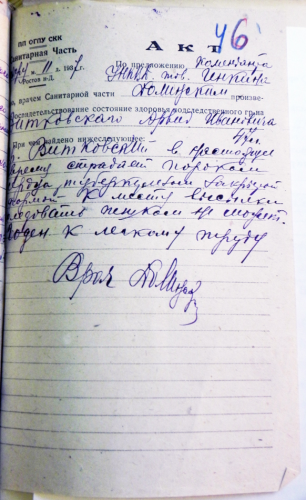 46
ПП ОГПУ СКК
Санитарная Часть
АКТ
11 1931 г.
Ростов н-Д.
По предложению коменданта
тов. Генкина
врачем Санитарной части произве-
освидетельствование состояние здоровья подследственного гр-на
Витковского Арвид Ивановича
При чем найдено нижеследующее:
Витковский в настоящее
время страдает пороком
сердца, туберкулезом
формой. К месту высылки
следовать пешком не сможет.
Годен к легкому труду
Врач